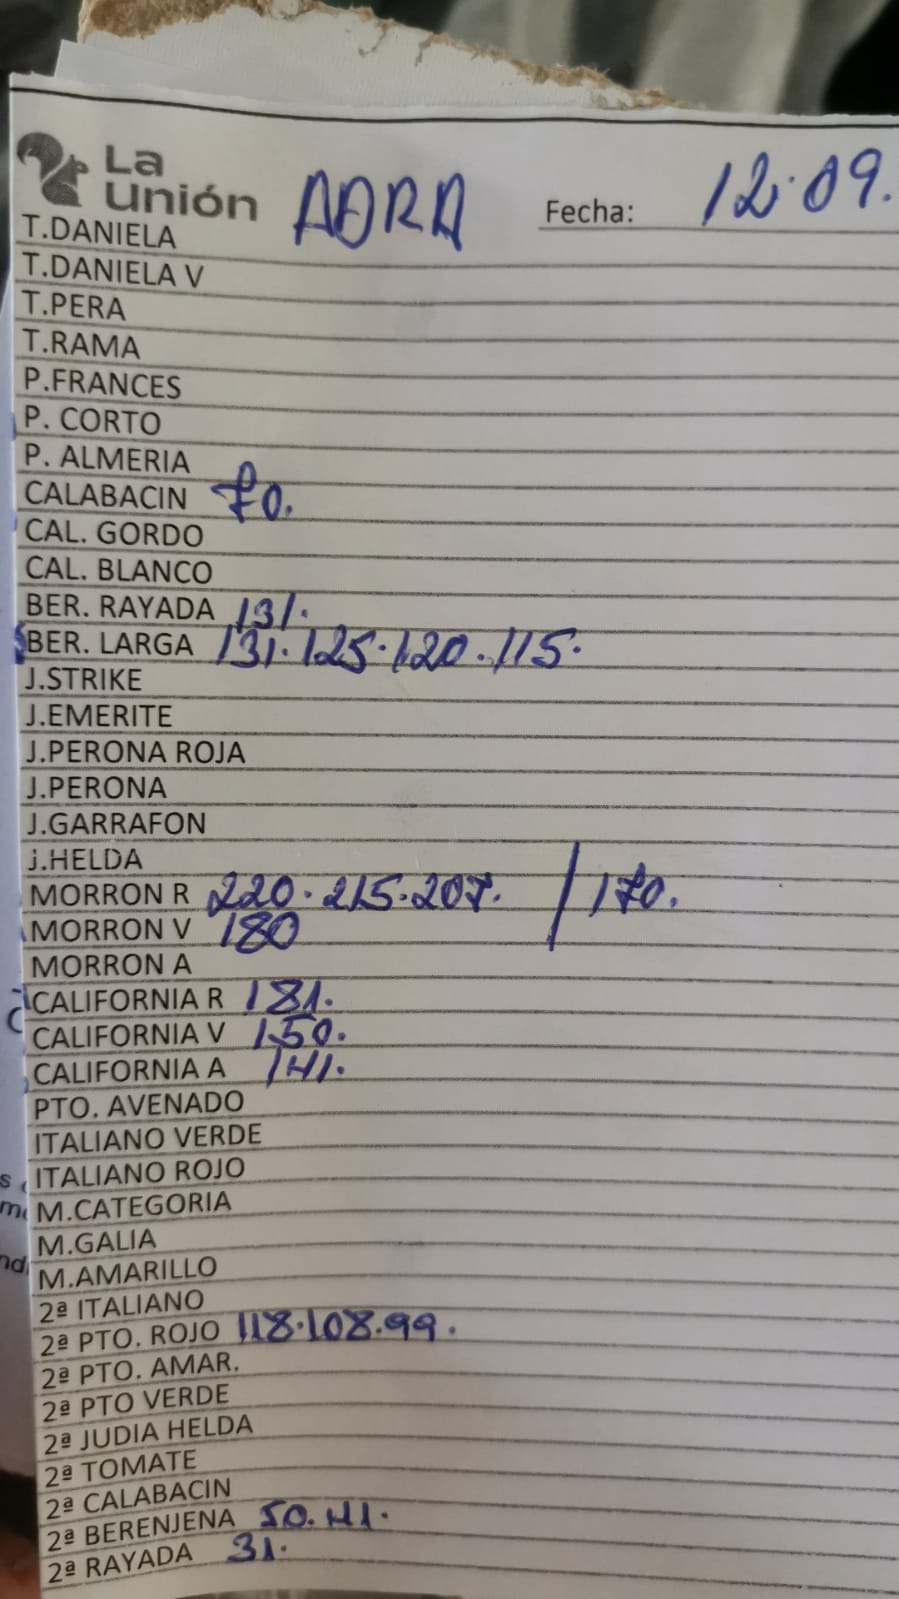 La Unión ADRA Fecha: 12.09.
T.DANIELA
T.DANIELA V
T.PERA
T.RAMA
P.FRANCES
P. CORTO
P. ALMERIA
CALABACIN 70.
CAL. GORDO
CAL. BLANCO
BER. RAYADA 131.
BER. LARGA 131.125.120.115.
J.STRIKE
J.EMERITE
J.PERONA ROJA
J.PERONA
J.GARRAFON
J.HELDA
MORRON R 220.215.207. / 170.
MORRON V 180
MORRON A
CALIFORNIA R 181.
CALIFORNIA V 150.
CALIFORNIA A 141.
PTO. AVENADO
ITALIANO VERDE
ITALIANO ROJO
M.CATEGORIA
M.GALIA
M.AMARILLO
2ª ITALIANO
2ª PTO. ROJO 118.108.99.
2ª PTO. AMAR.
2ª PTO VERDE
2ª JUDIA HELDA
2ª TOMATE
2ª CALABACIN
2ª BERENJENA 50.41.
2ª RAYADA 31.